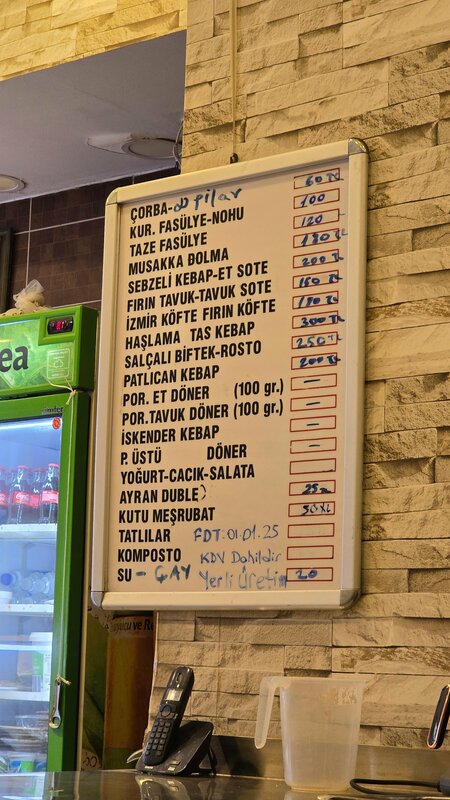 ea
ÇORBA-pilav 60 TL
KUR. FASÜLYE-NOHU 100
TAZE FASÜLYE 120
MUSAKKA DOLMA 180 TL
SEBZELİ KEBAP-ET SOTE 200 TL
FIRIN TAVUK-TAVUK SOTE
İZMİR KÖFTE FIRIN KÖFTE
HAŞLAMA TAS KEBAP 300 TL
SALÇALI BİFTEK-ROSTO 250 TL
PATLICAN KEBAP 200 TL
POR. ET DÖNER (100 gr.) –
POR.TAVUK DÖNER (100 gr.) –
İSKENDER KEBAP –
P. ÜSTÜ DÖNER –
YOĞURT-CACIK-SALATA
AYRAN DUBLE) 25
KUTU MEŞRUBAT 50 TL
TATLILAR FDT:01.01.25
KOMPOSTO KDV Dahildir
SU - ÇAY Yerli Üretim 20